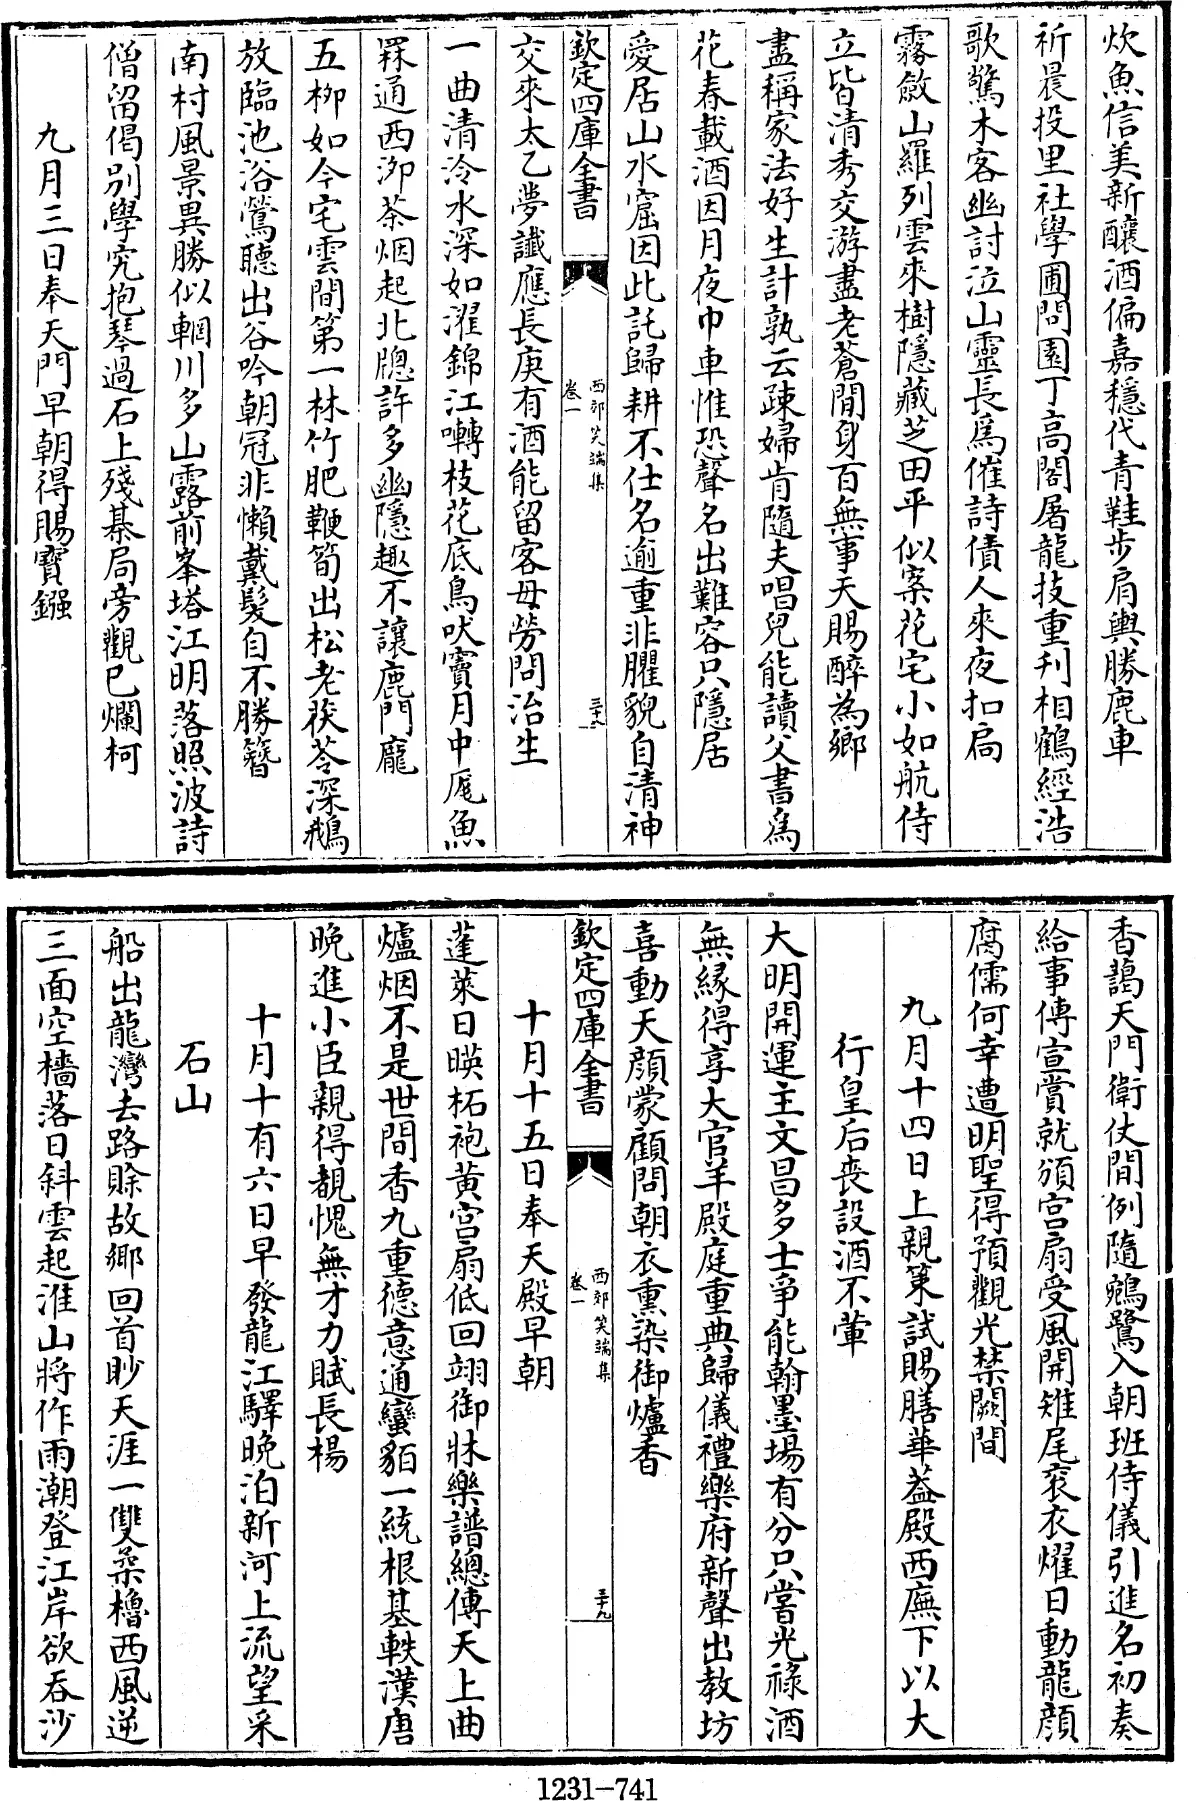 炊魚信美新釀酒偏嘉穩代青鞋步肩輿勝鹿車
祈晨投里社學圃問園丁髙閣屠龍技重刋相鶴經浩
歌驚木客幽討泣山靈長爲催詩債人來夜扣扃
霧斂山羅列雲來樹隱藏芝田平似案花宅小如航侍
立皆清秀交游盡老蒼閒身百無事天賜醉為鄉
盡稱家法好生計孰云疎婦肯隨夫唱兒能讀父書爲
花春載酒因月夜巾車惟恐聲名出難容只隱居
愛居山水窟因此託歸耕不仕名逾重非臞貌自清神
欽定四庫全書
西郊笑端集
卷一
三十八
交來太乙夢讖應長庚有酒能留客毋勞問治生
一曲清泠水深如濯錦江囀枝花底鳥吠竇月中厖魚
罧通西泖茶烟起北牕許多幽隱趣不讓鹿門龐
五栁如今宅雲間第一林竹肥鞭筍出松老茯苓深鵝
放臨池浴鶯聽出谷吟朝冠非懶戴髮自不勝簪
南村風景異勝似輞川多山露前峯塔江明落照波詩
僧留偈别學究抱琴過石上殘棊局旁觀已爛柯
九月三日奉天門早朝得賜寶鏹
香藹天門衛仗閒例隨鵷鷺入朝班侍儀引進名初奏
給事傳宣賞就頒宫扇受風開雉尾衮衣燿日動龍顔
腐儒何幸遭明聖得預觀光禁闕間
九月十四日上親策試賜膳華葢殿西廡下以大
行皇后喪設酒不葷
大明開運主文昌多士爭能翰墨場有分只嘗光祿酒
無縁得享大官羊殿庭重典歸儀禮樂府新聲出教坊
喜動天顔蒙顧問朝衣熏染御爐香
欽定四庫全書
西郊笑端集
卷一
三十九
十月十五日奉天殿早朝
蓬萊日暎柘袍黄宫扇低回翊御牀樂譜總傳天上曲
爐烟不是世間香九重德意通蠻貊一統根基軼漢唐
晚進小臣親得覩愧無才力賦長楊
十月十有六日早發龍江驛晚泊新河上流望采
石山
船出龍灣去路賒故鄉回首眇天涯一雙柔櫓西風逆
三面空檣落日斜雲起淮山將作雨潮登江岸欲吞沙
1231-741